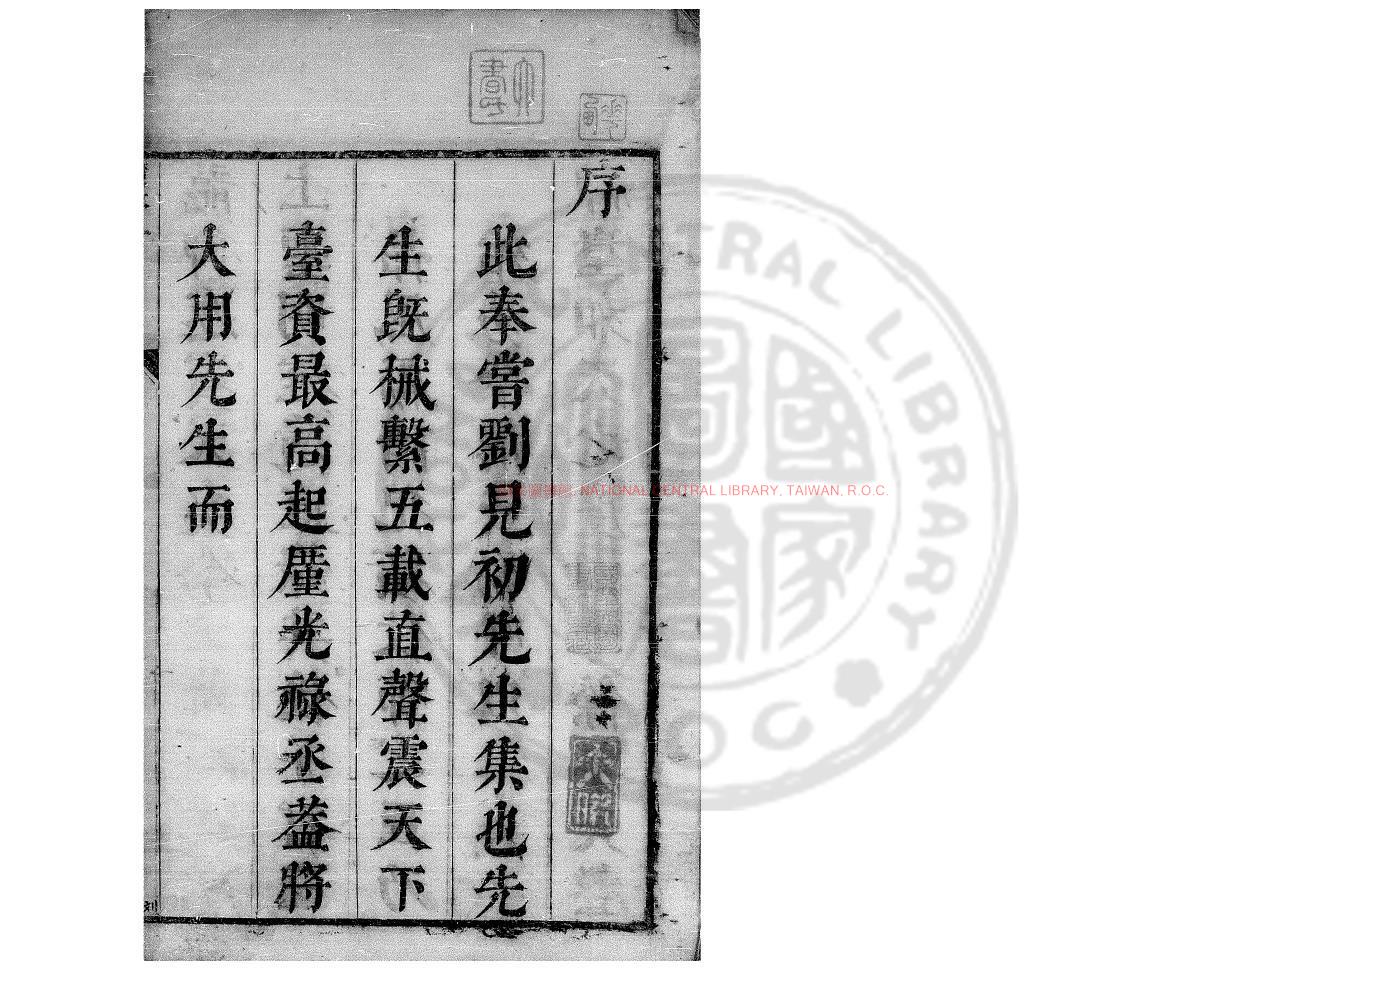 序
此奉嘗劉見初先生集也先
生旣械繫五載直聲震天下
臺資最高起厪光祿丞葢將
大用先生而
NATIONAL CENTRAL LIBRARY, TAIWAN, R.O.C.